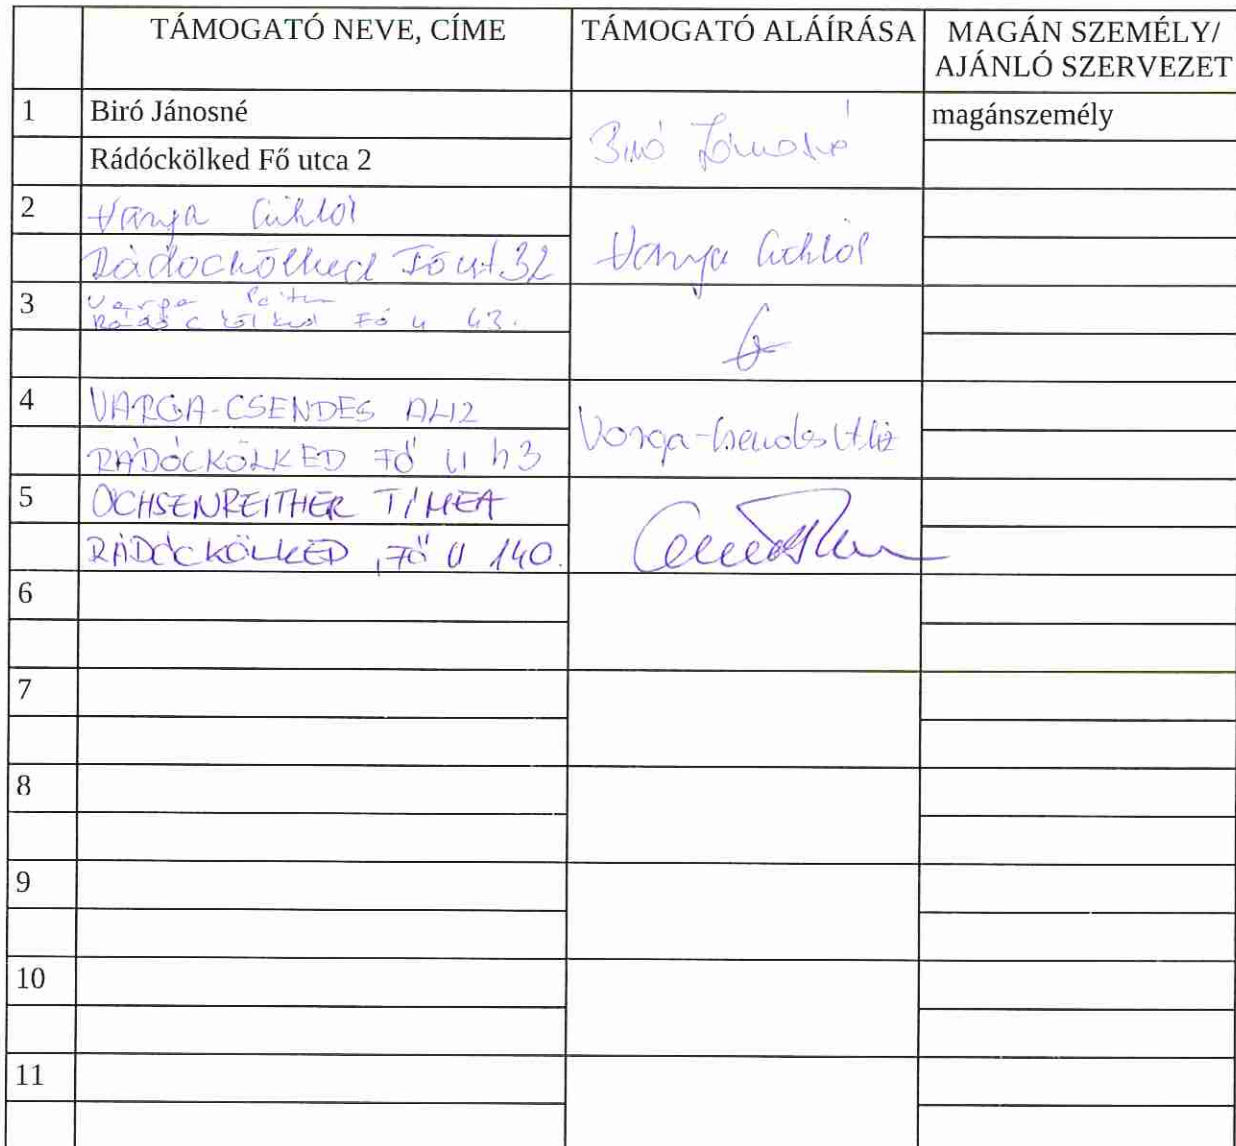 TÁMOGATÓ NEVE, CÍME
TÁMOGATÓ ALÁÍRÁSA
MAGÁN SZEMÉLY/
AJÁNLÓ SZERVEZET
1
Biró Jánosné
Biró Jánosné
magánszemély
Rádóckölked Fő utca 2
2
Vanya
Vanya
Rádockölked Fő út 32
3
Varga
Rádóckölked Fő u 43.
4
VARGA-CSENDES ALIZ
Varga-Csendes Aliz
RÁDÓCKÖLKED FŐ U 43
5
OCHSENREITHER TÍMEA
RÁDÓCKÖLKED, FŐ U 140.
6
7
8
9
10
11